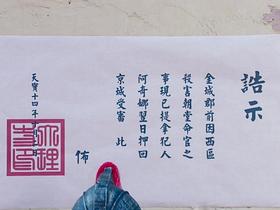 誥示
金城郡前因西區
殺害朝堂命官之
事現已捉拿犯人
阿奇娜翌日押回
京城受審 此
佈
天寶十四年十
大理